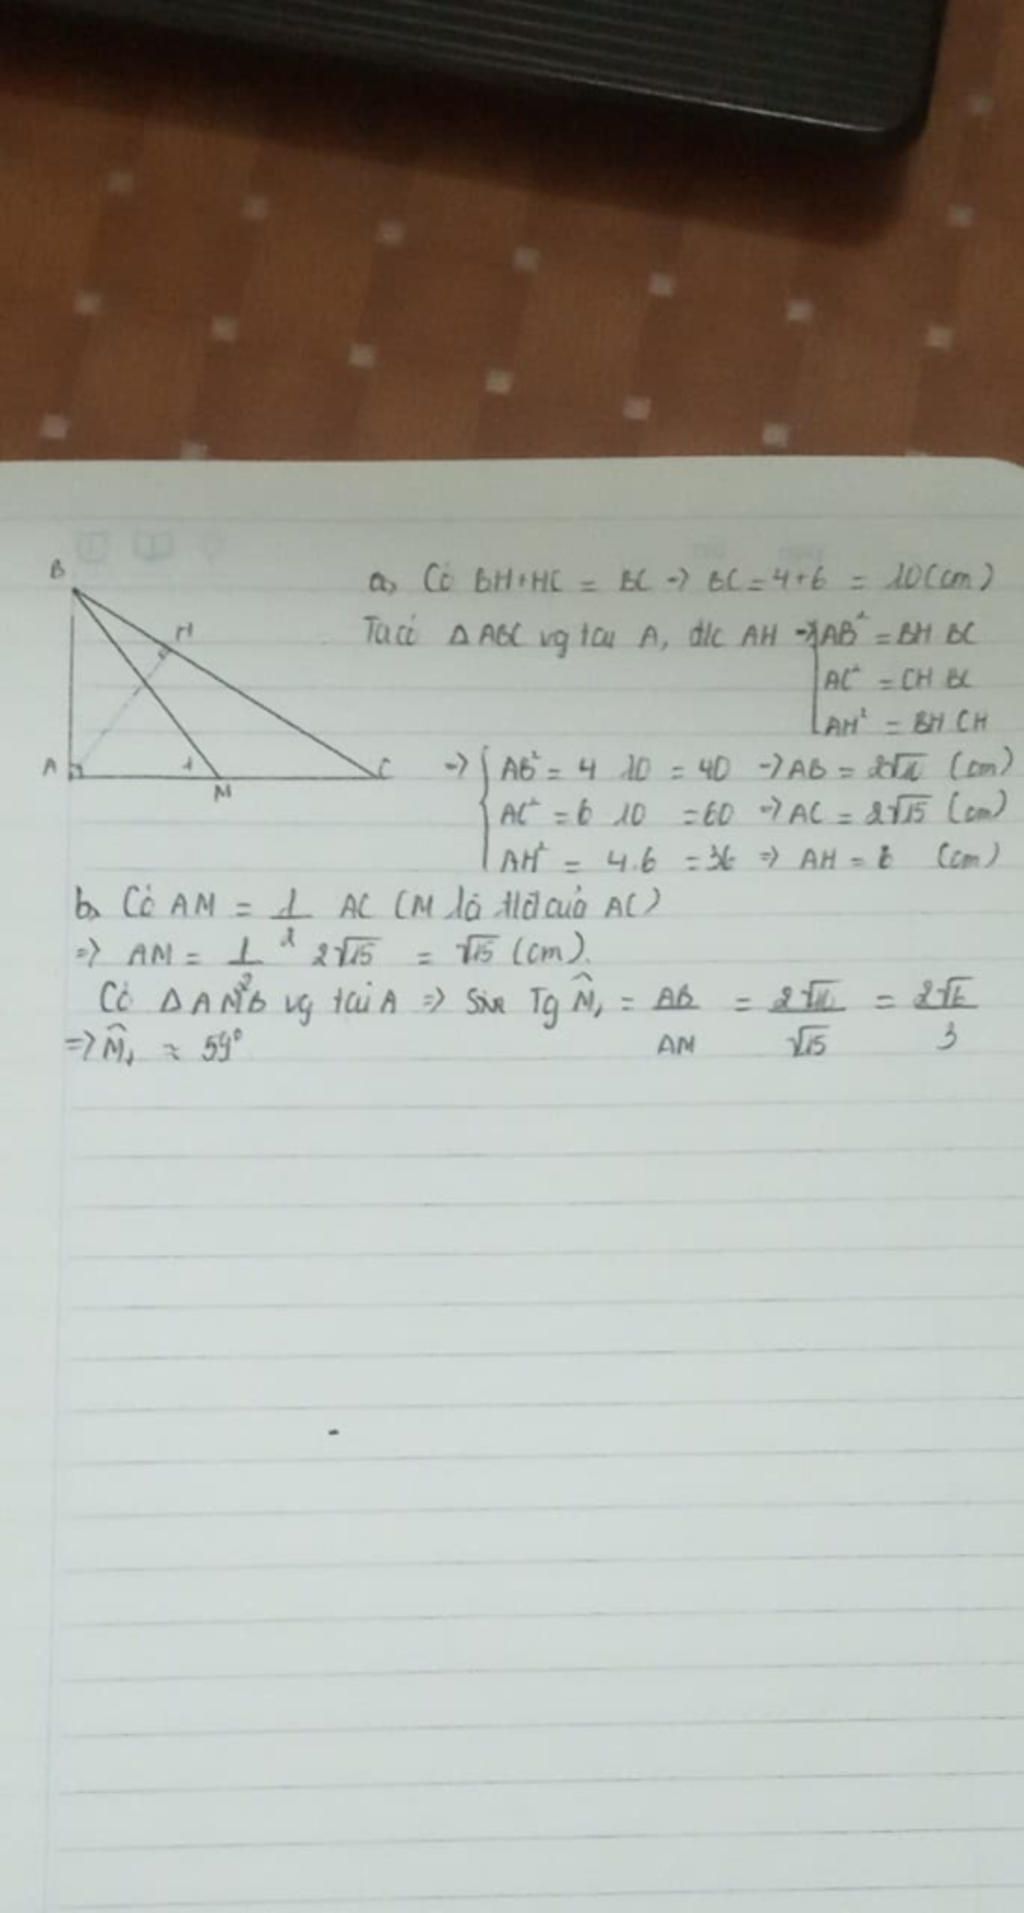 B
H
A
1
M
C
a, Có BH+HC = BC → BC = 4+6 = 10(cm)
Ta có Δ ABC vg tại A, đ/c AH → AB² = BH BC
AC² = CH BC
AH² = BH CH
→ AB² = 4 10 = 40 → AB = (cm)
AC² = 6 10 = 60 → AC = 2√15 (cm)
AH² = 4.6 = 36 ⇒ AH = 6 (cm)
b, Có AM = 1/2 AC (M là của AC)
⇒ AM = 1/2 2√15 = √15 (cm).
Có Δ AMB vg tại A ⇒ Tg M̂₁ = AB/AM = = 2√6/3
⇒ M̂₁ ≈ 59°